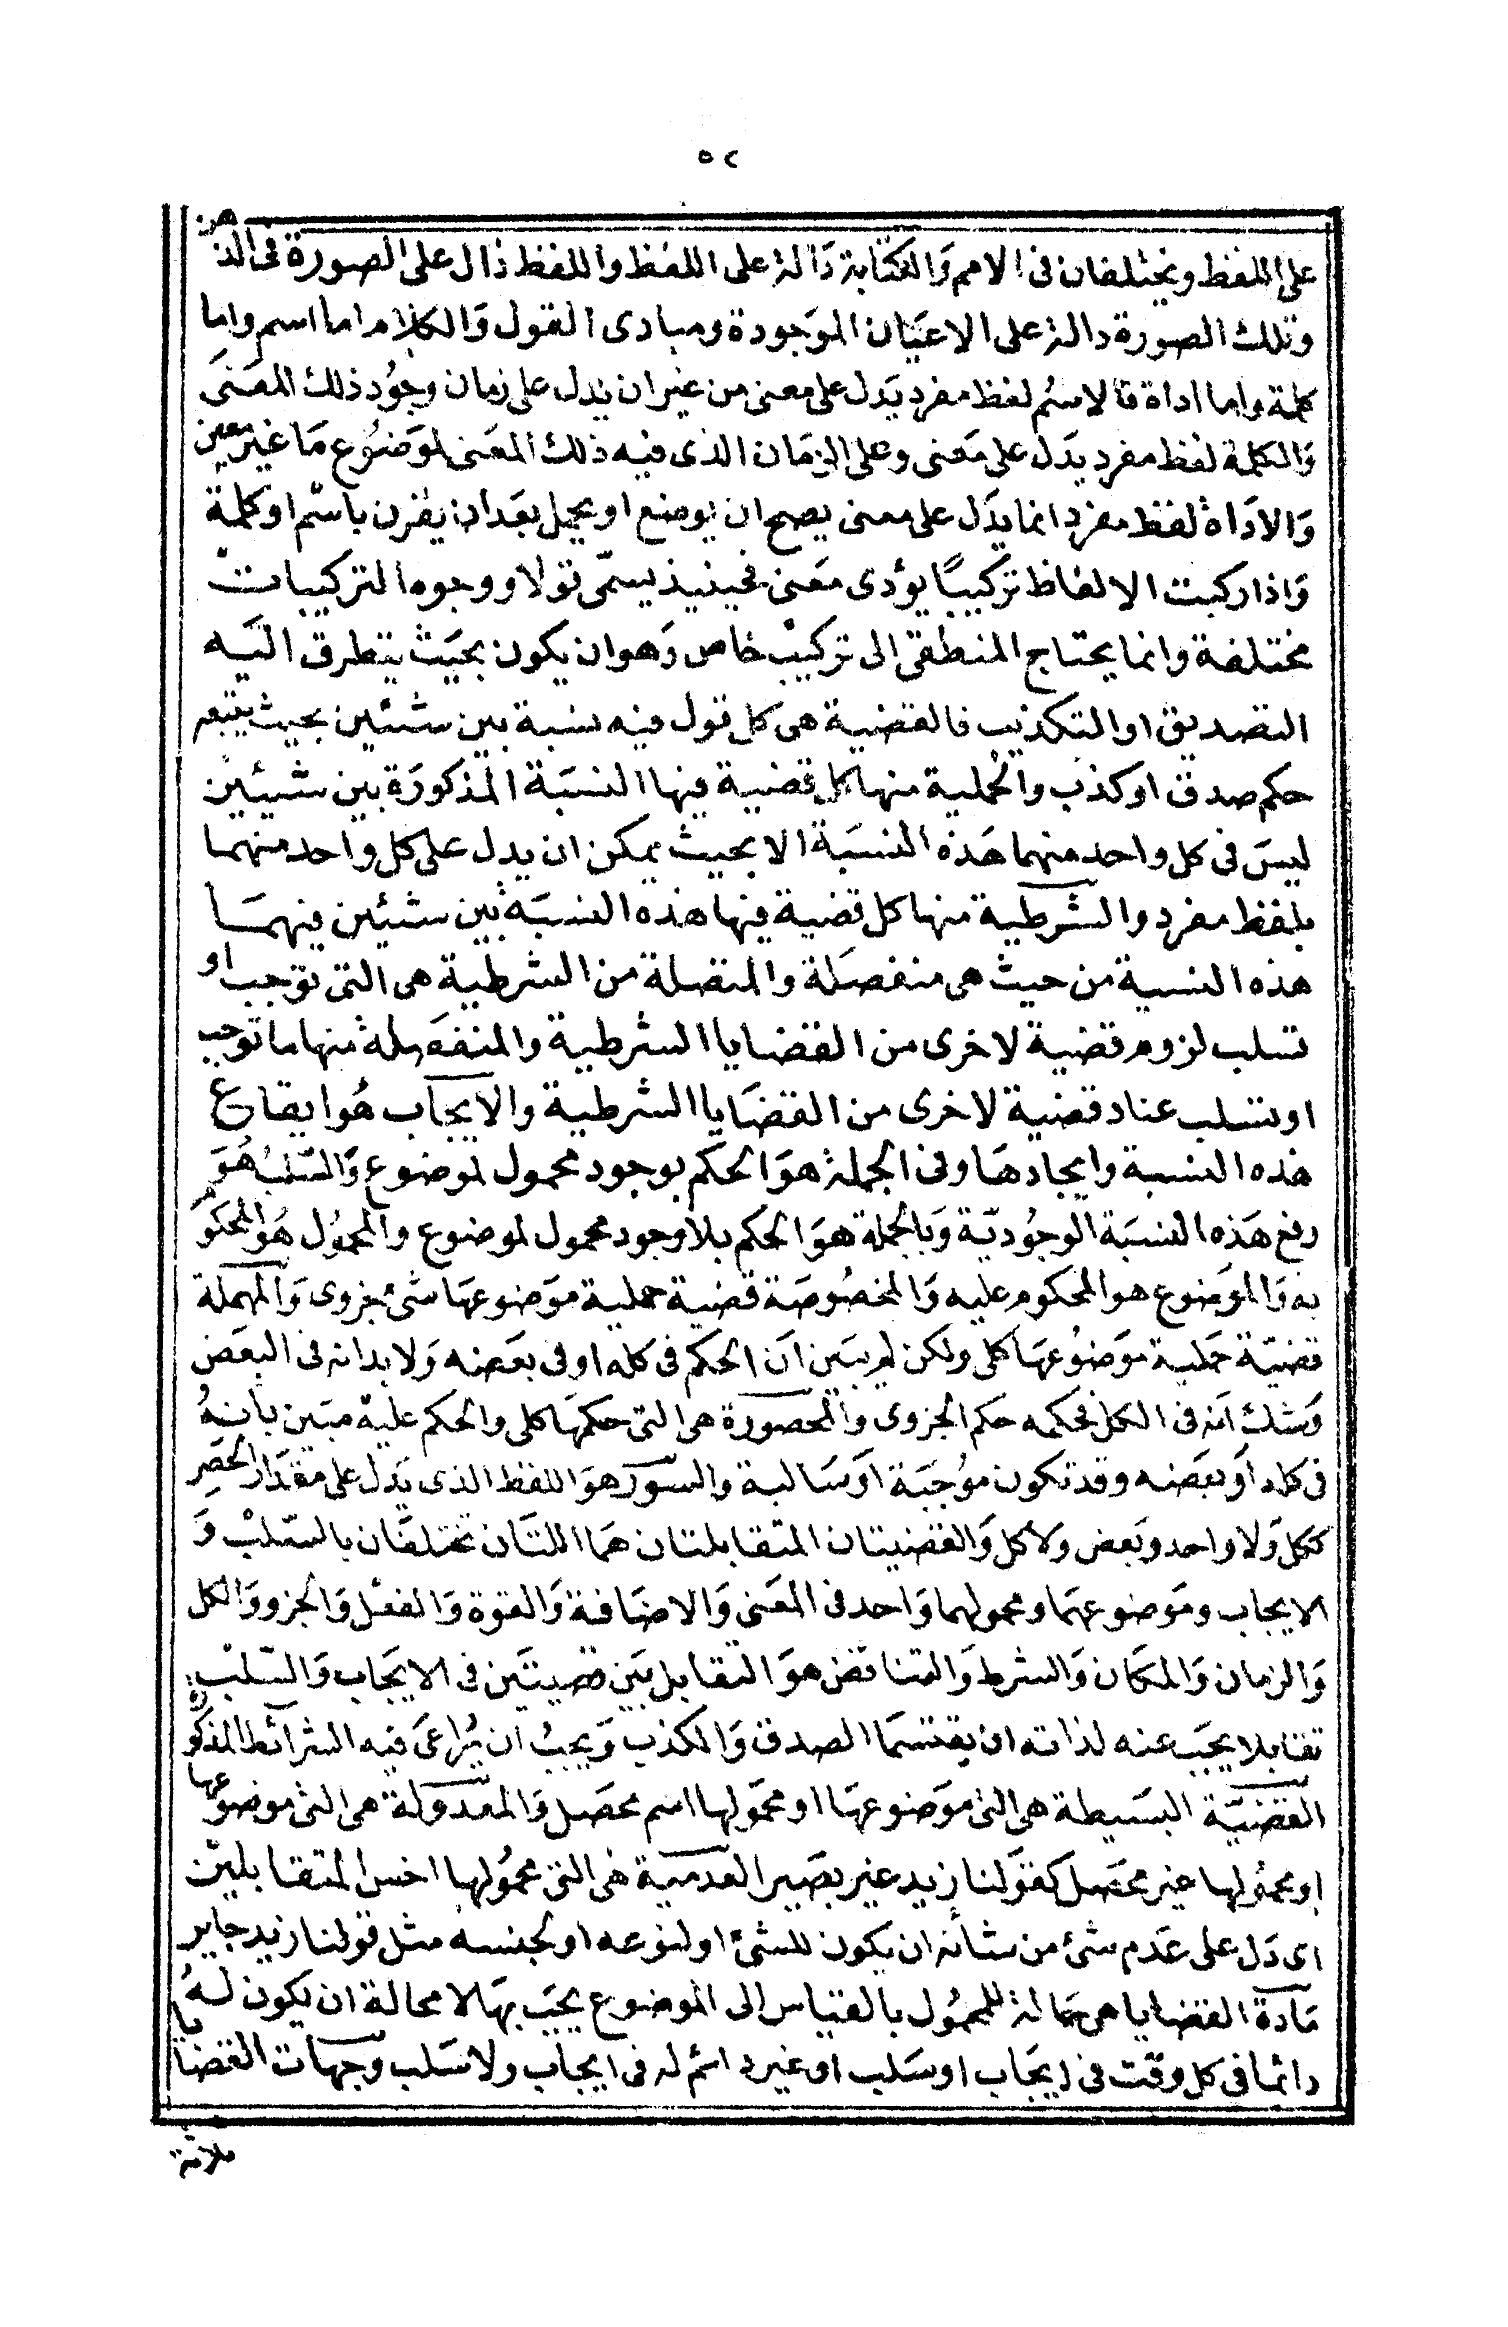 ٥٢
على اللفظ ويختلفان فى الامم وَالكتَابة دَالة على اللفظ واللفظ دَال على الصورة فى الذهن
وتلك الصورة دالة على الاعيَان الموَجودة ومبادى القول وَالكلام اما اسم واما
كلمة واما اداة فالاسُم لفظ مفرد يَدل على معنى من غير ان يدل على زمان وجوُد ذلك المعنىَ
وَالكلمة لفظ مفرد يدَل على مَعنى وعلى الزمَان الذى فيه ذلك المعَنى لموَضوُع مَا غير معين
وَالادَاة لفظ مفرد انما يدَل على معنى يصح ان يوضع او يحمل بَعد ان يقرن باسْم او كلمة
وَاذا ركبت الالفاظ تركيبًا يؤدى معَنى فحينيذ يسمّى قولا ووجوه التركيبات
مختلفة وانما يحتاج المنطقى الى تركيبْ خاص وَهو ان يكون بحيَث يتطرق اليَه
التصديق او التكذيب فالقضية هى كل قول فيه نسبة بين شئين بحيث يتبعه
حكم صدق او كذب والحملية منها كل قضية فيها النسبَة المذكورَة بين شيئين
ليسَ فى كل واحد منهما هَذه النسبَة الا بحيث يمكن ان يدل على كل واحد منهما
بلفظ مفرد والشرطية منها كل قضية فيها هذه النسبَة بين شئين فيهمَا
هذه النسبة من حيث هى منفصلَة والمتصلة من الشرطية هى التى توجب او
تسلب لزوم قضية لاخرى من القضايا الشرطية والمنفصلة منها ما توجب
او تسلب عناد قضية لاخرى من القضَايا الشرطية والايجاب هُو ايقاع
هذه النسبة وايجادهَا وفى الجملة هوَ الحكم بوجود محمول لموضوع وَالسَلبُ هُوَ
رفع هَذه النسبَة الوجُوديّة وَبالجملة هوَ الحكم بلاوجود محمول لموضوع والمحموُل هُو المحكوم
به وَالموَضوع هو المحكوم عليه وَالمخصُوصَة قضية حملية موَضوعهَا شئ جزوى وَالمهملة
قضيّة حَملية موَضوُعهَا كلى ولكن لم يبَين انَ الحكم فى كله او فى بعَضه وَلا بد انه فى البعَض
وَشك انه فى الكل فحكمه حكم الجزوى والمحصورة هى التى حكمهَا كلى والحكم عليه مبيَن بانهُ
فى كله اوَ بعَضه وقد تكون موُجبَة اوَ سَالبة والسوَر هوَ اللفظ الذى يَدل على مقدَار الحَصر
ككل وَلا واحد وبَعض وَلا كل وَالقضيتان المتقابلتان همَا اللتَان تختلفَان بالسَلبْ وَ
الايجاب وموَضوعهمَا ومحمولهما وَاحد فى المعَنى وَالاضَافة وَالقوة وَالفعْل وَالجزو وَالكل
وَالزمان وَالمكَان وَالشرط وَالتناقض هوَ التقابل بيَن قضيتيَن فى الايجَاب وَالسّلبْ
تقابلا يجَب عنه لذاته ان يقتسمَا الصدق وَالكذب وَيجبُ ان يُراعىَ فيه الشرآئط المذكورة
القضيّة البسَيطة هى التى موَضوعهَا او محموَلها اسم محصَل وَالمعدوَلة هى التى موضوعها
او محموُلها غير محصَل كقوَلنا زيد غير بصَير العدميَة هى التى محموُلها اخس المتقابليَن
اى دَل على عَدم شئ من شأنه ان يكون للشئ او لنوعه او لجنسه مثل قولنا زيد جاير
مَادة القضايا هى حَالة للمحموُل بالقياس الى الموضوع يجَب بهَا لا محالة ان يكون لهُ
دائما فى كل وقت فى ايجَاب او سَلب او غير دائم له فى ايجَاب ولا سَلب وجهات القضايا
ثلاثة